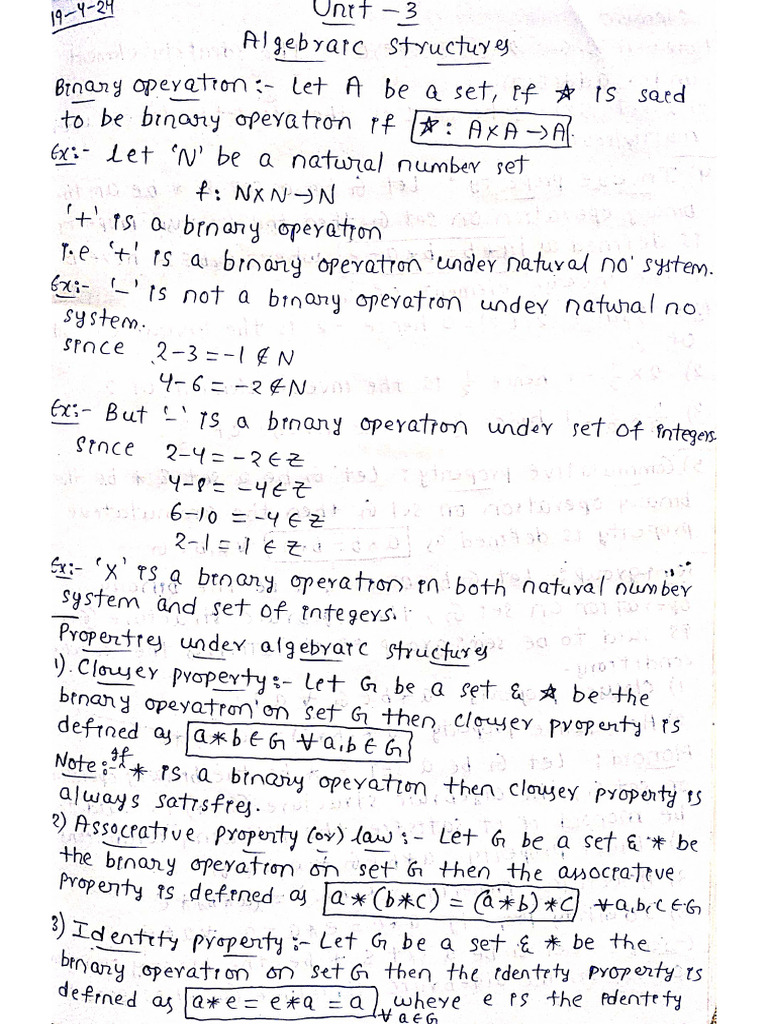 19-4-24
Unit - 3
Algebraic structures
Binary operation :- Let A be a set, if ☆ is said
to be binary operation if ☆ : A×A → A.
Ex:- Let 'N' be a natural number set
f : N×N → N
'+' is a binary operation
i.e '+' is a binary operation under natural no' system.
Ex:- '-' is not a binary operation under natural no.
system.
since 2-3 = -1 ∉ N
4-6 = -2 ∉ N
Ex:- But '-' is a binary operation under set of integers.
since 2-4 = -2 ∈ Z
4-8 = -4 ∈ Z
6-10 = -4 ∈ Z
2-1 = 1 ∈ Z
Ex:- 'X' is a binary operation in both natural number
system and set of integers.
Properties under algebraic structures
1). Clouser property :- Let G be a set & ☆ be the
binary operation on set G then clouser property is
defined as a*b ∈ G ∀ a,b ∈ G
Note :- if * is a binary operation then clouser property is
always satisfies.
2) Associative property (or) law :- Let G be a set & * be
the binary operation on set G then the associative
property is defined as a*(b*c) = (a*b)*c ∀ a,b,c ∈ G
3) Identity property :- Let G be a set & * be the
binary operation on set G then the identity property is
defined as a*e = e*a = a, where e is the identity
∀ a ∈ G